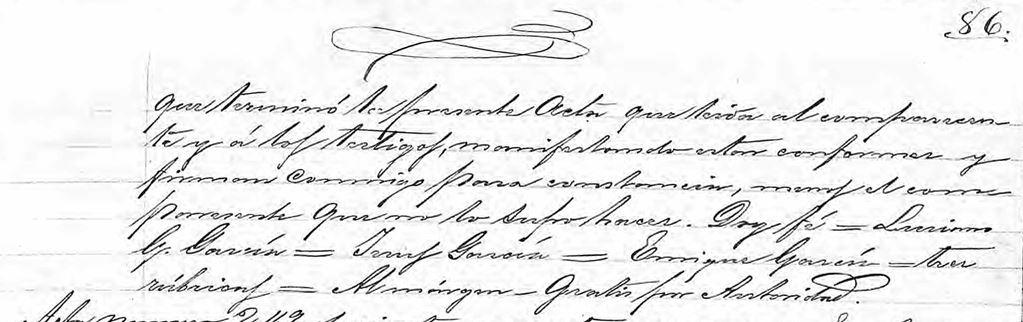 86.
que terminó la presente Acta que leida al comparecen-
te y á los testigos, manifestando estan conformes y
firman conmigo para constancia, menos el com-
pareciente que no lo supo hacer. Doy fé = Luciano
G. Garcia = Jesus Garcia = Enrique Garcia = tres
rúbricas = Al márgen - Gratis por Autoridad.
Acta numero